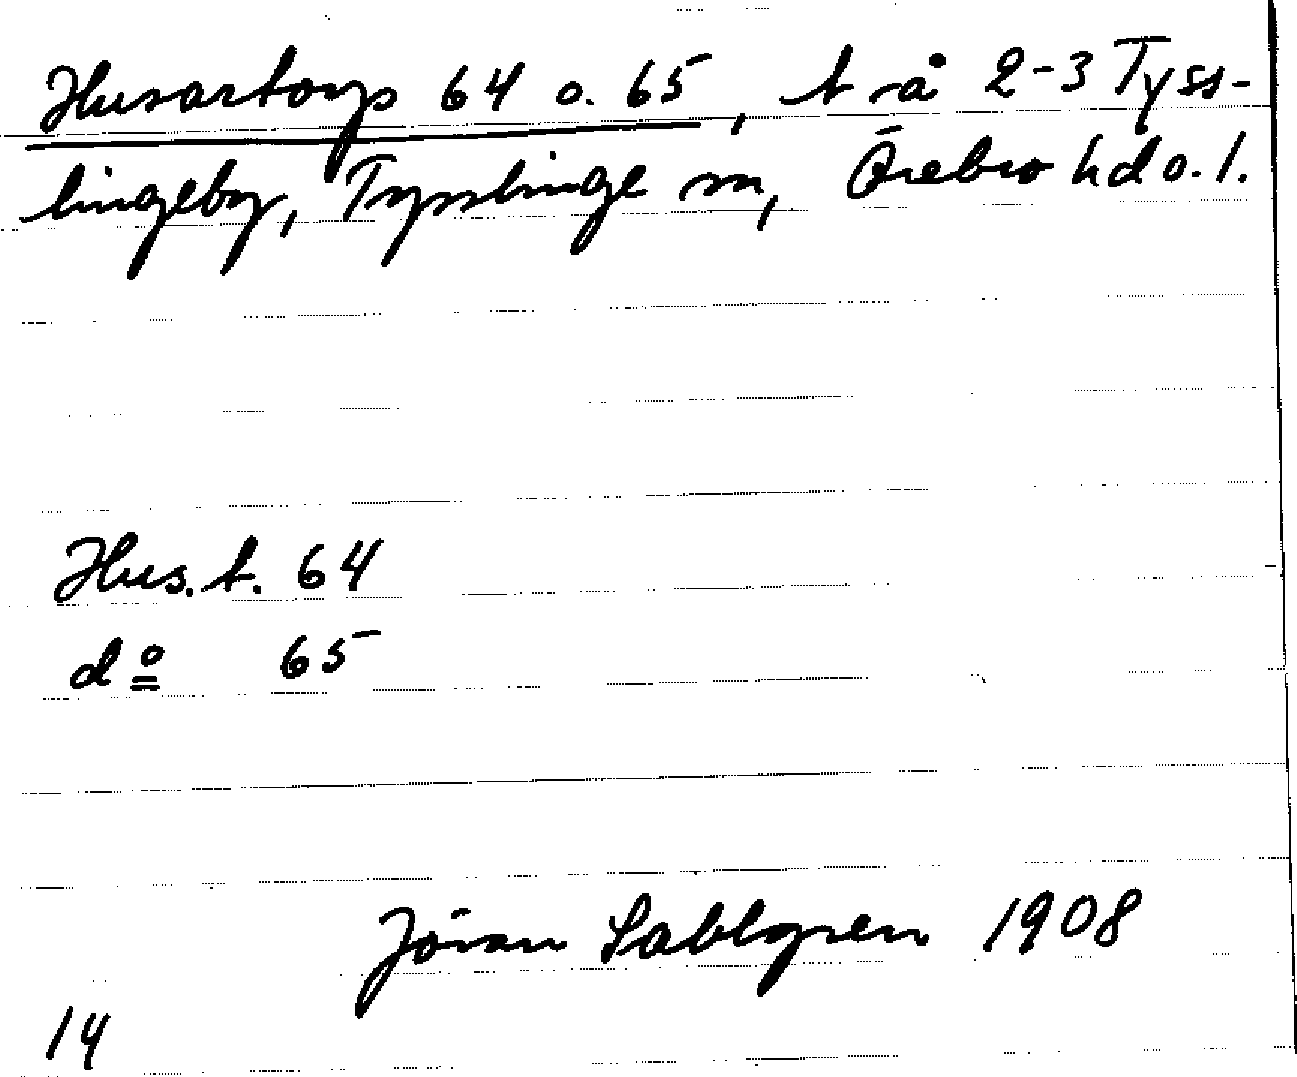 Husartorp 64 o. 65, t rå 2-3 Tyss-
lingeby, Tysslinge sn, Örebro hd o. l.
Hus.t. 64
dº 65
Jöran Sahlgren 1908
14